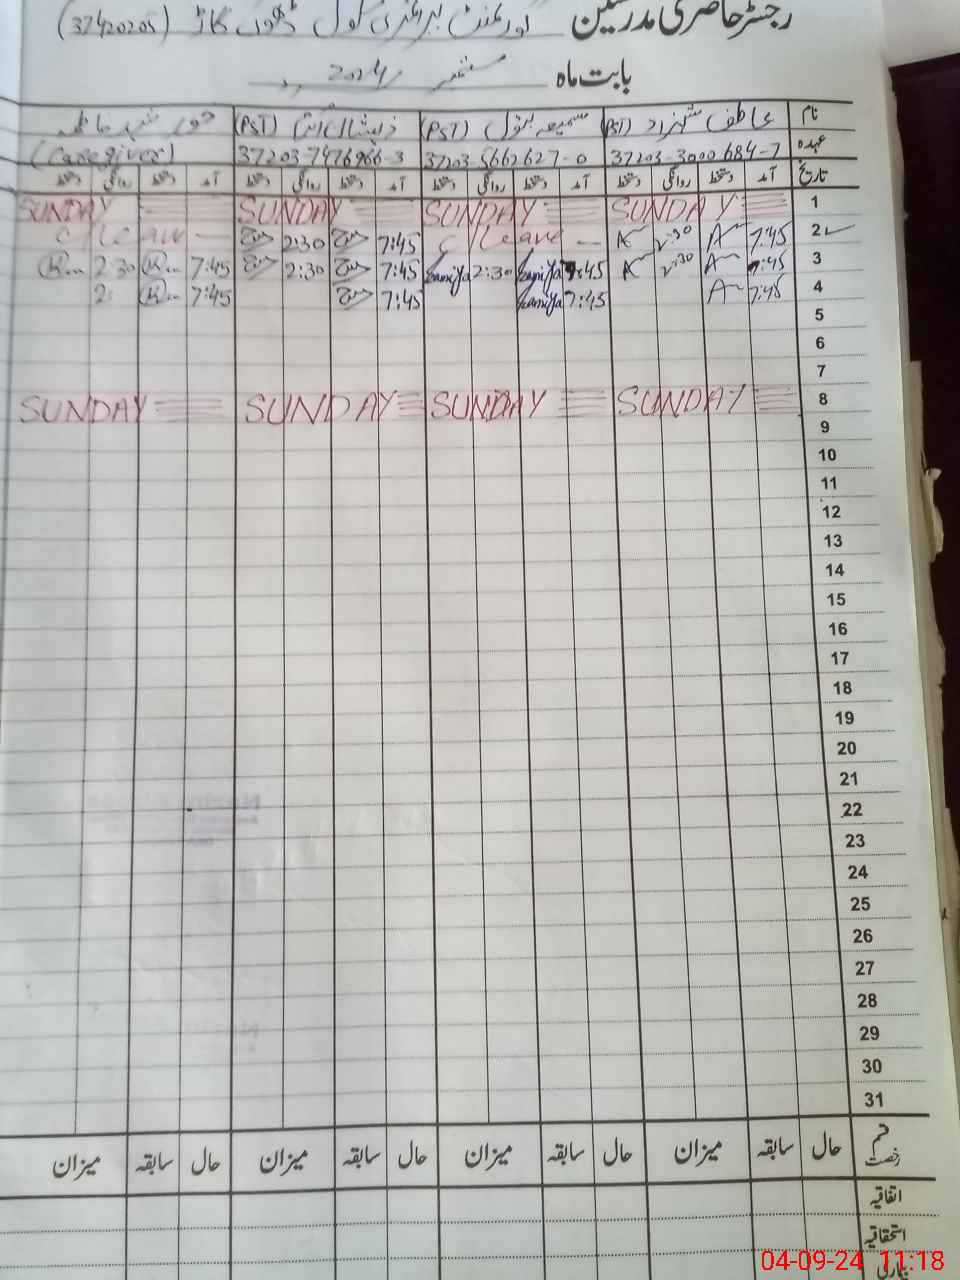 رجسٹر حاضری مدرسین گورنمنٹ پرائمری سکول (37420205)
بابت ماہ ستمبر 2024ء
نام عاطف شہزاد (PST) سمیعہ بتول (PST) ذیشال (PST)
عہدہ 37203-3000684-7 37203 5662627-0 37203 7476966-3 (Caregiver)
تاریخ آمد دستخط روانگی دستخط آمد دستخط روانگی دستخط آمد دستخط روانگی دستخط آمد دستخط روانگی دستخط
1 SUNDAY SUNDAY SUNDAY SUNDAY
2 7:45 2:30 C/Leave 7:45 2:30 C/Leave
3 7:45 2:30 7:45 Samiya 2:30 Samiya 7:45 2:30 7:45 2:30
4 7:45 7:45 Samiya 7:45 7:45 2:
5
6
7
8 SUNDAY SUNDAY SUNDAY SUNDAY
9
10
11
12
13
14
15
16
17
18
19
20
21
22
23
24
25
26
27
28
29
30
31
قسم رخصت حال سابقہ میزان حال سابقہ میزان حال سابقہ میزان حال سابقہ میزان
اتفاقیہ
استحقاقیہ
بیماری
04-09-24 11:18